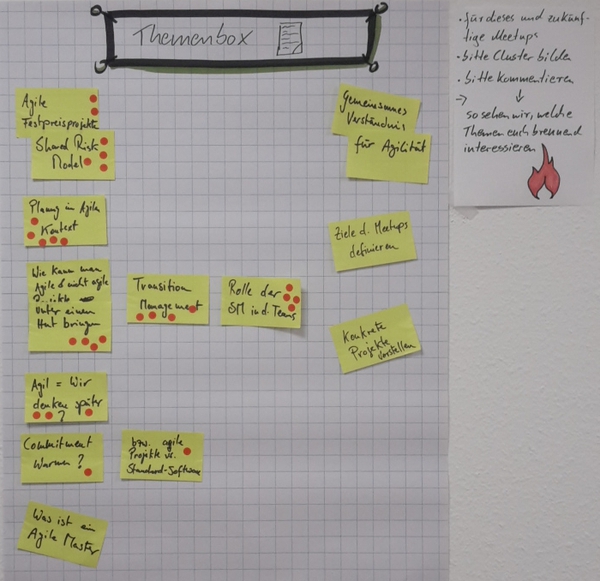 Themenbox
Agile
Festpreisprojekte
Shared Risk
Model
Planung im Agilen
Kontext
Wie kann man
Agile & nicht agile
unter einen
Hut bringen
Transition
Management
Rolle der
SM in d. Teams
Agil = Wir
denken später
?
Commitment
Warum?
bzw. agile
Projekte vs.
Standard-Software
Was ist ein
Agile Master
Gemeinsames
Verständnis
für Agilität
Ziele d. Meetups
definieren
Konkrete
Projekte
vorstellen
• für dieses und zukünf-
tige Meetups
• bitte Cluster bilden
• bitte kommentieren
→ ↓
so sehen wir, welche
Themen euch brennend
interessieren